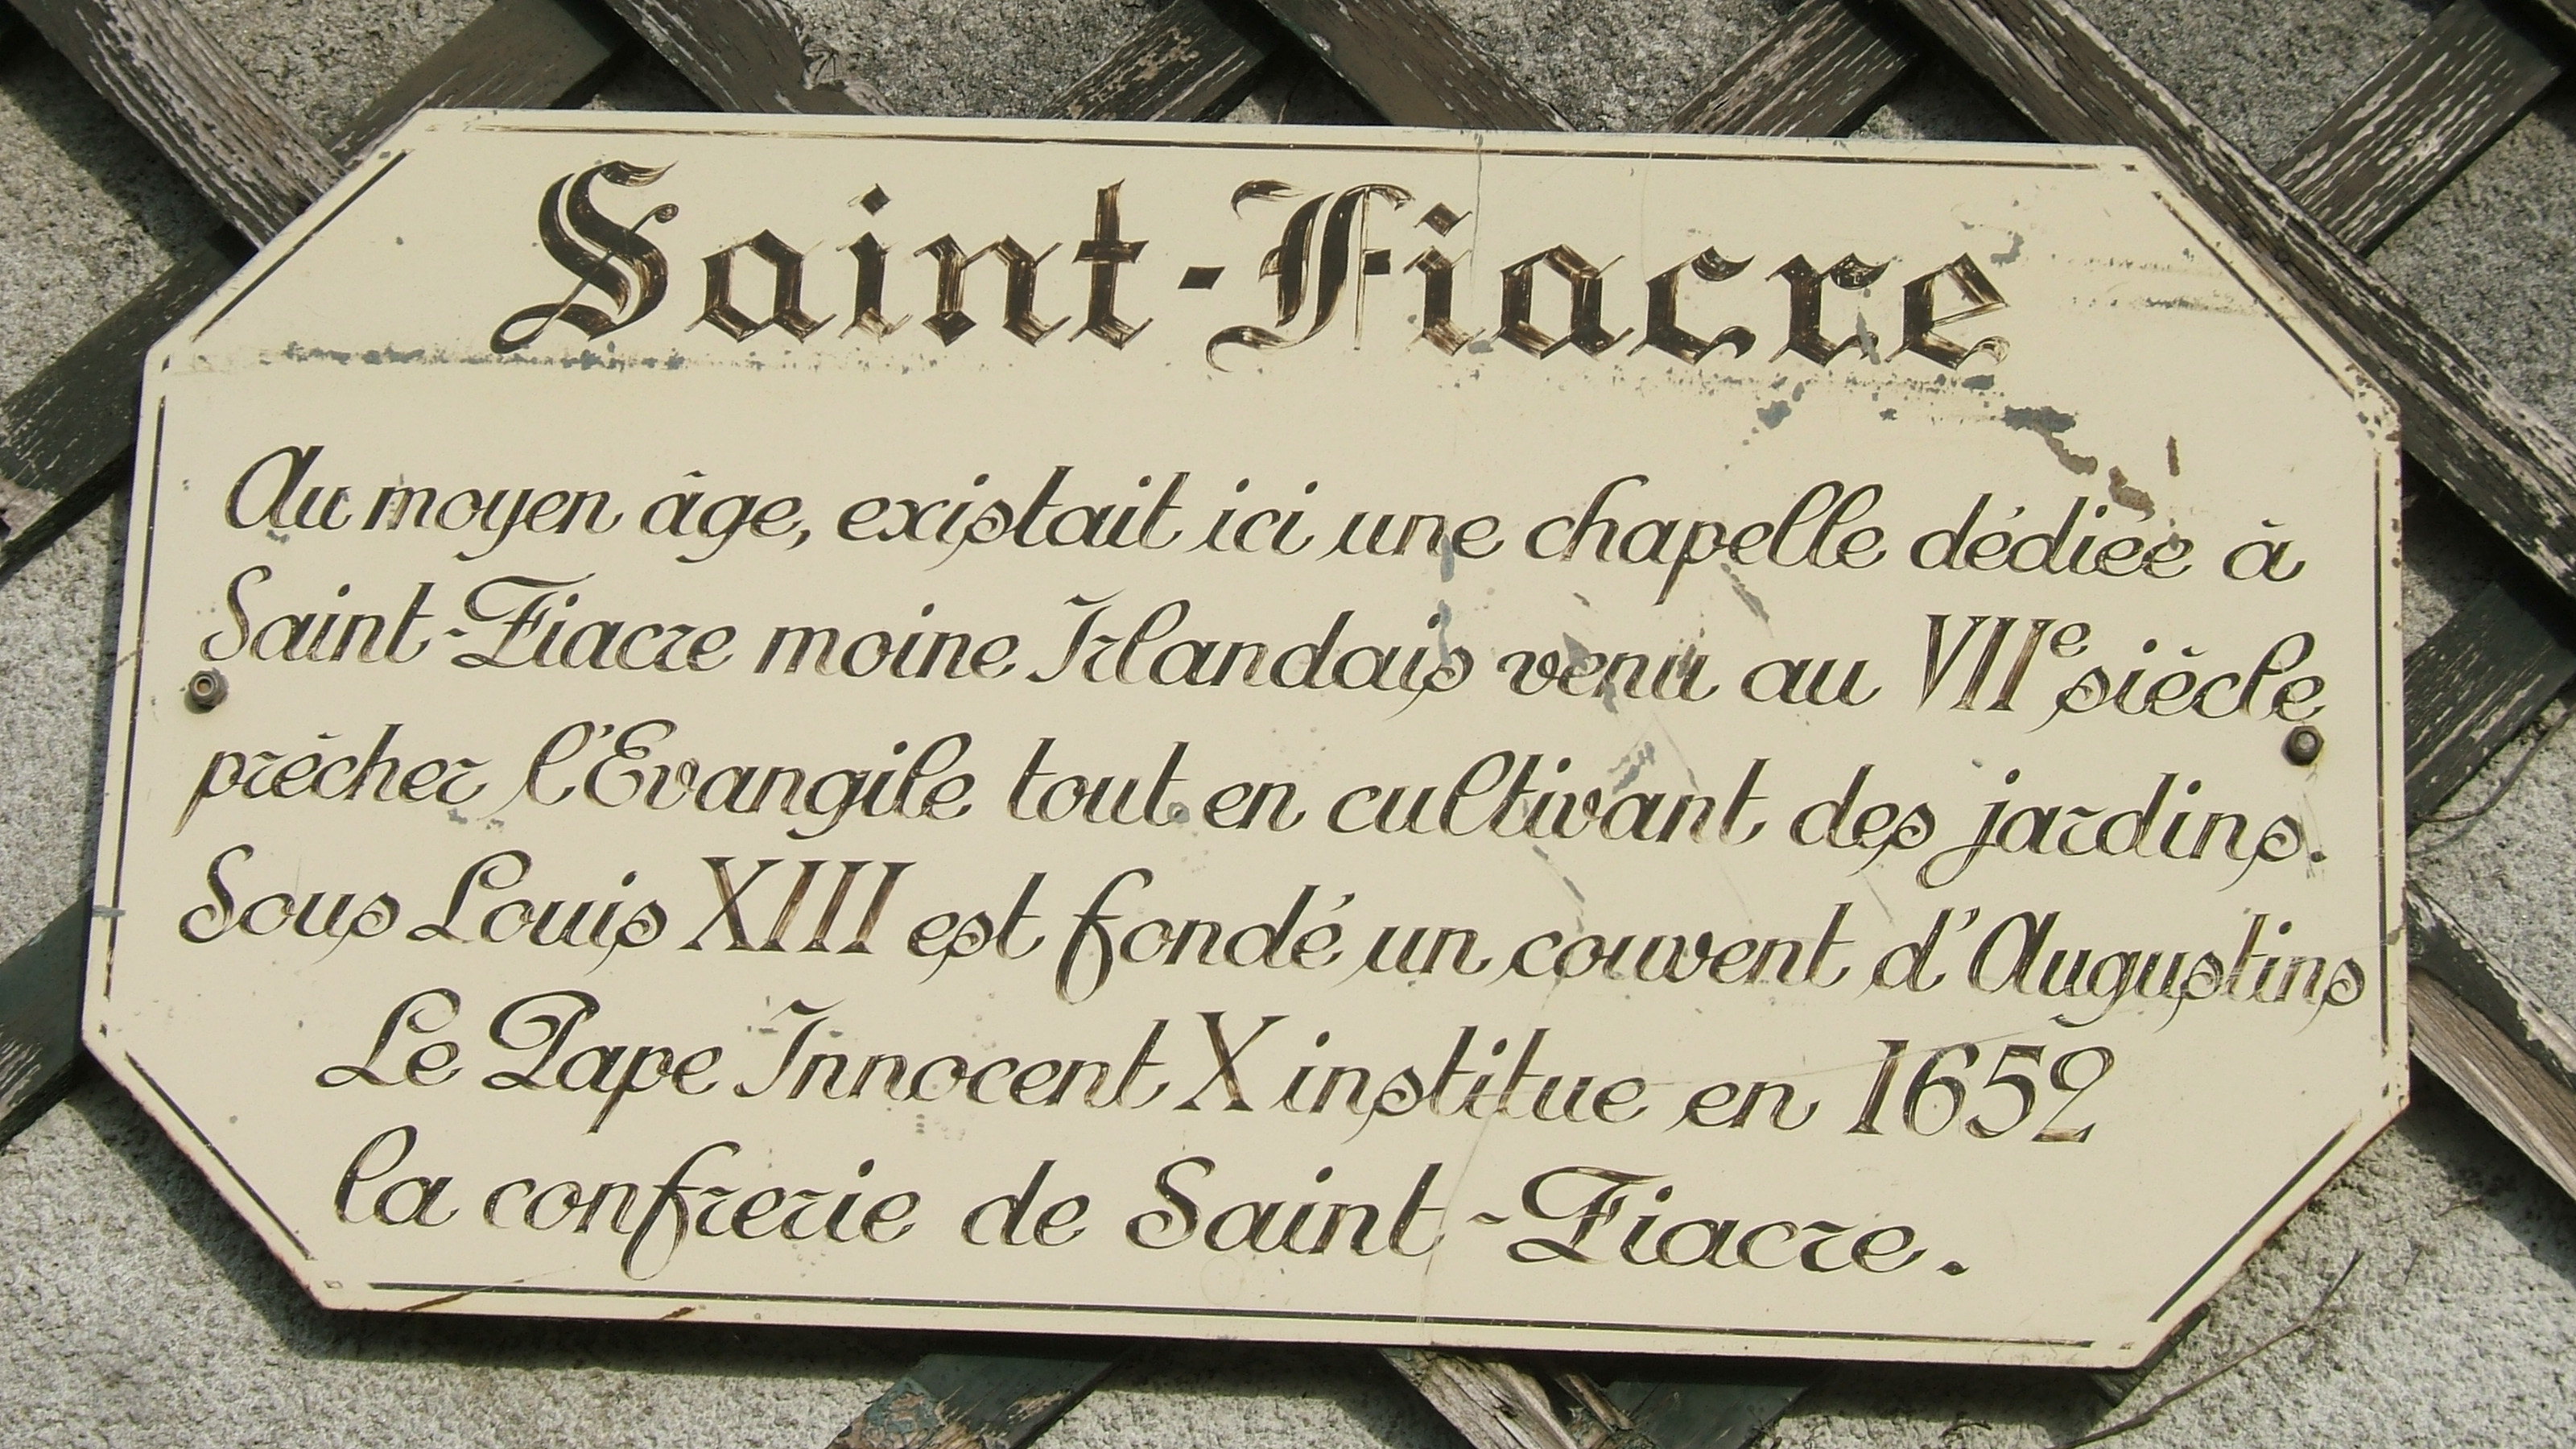 Saint-Fiacre
Au moyen âge, existait ici une chapelle dédiée à
Saint-Fiacre moine Irlandais venu au VIIe siècle
prêcher l'Evangile tout en cultivant des jardins.
Sous Louis XIII est fondé un couvent d'Augustins
Le Pape Innocent X institue en 1652
la confrerie de Saint-Fiacre.